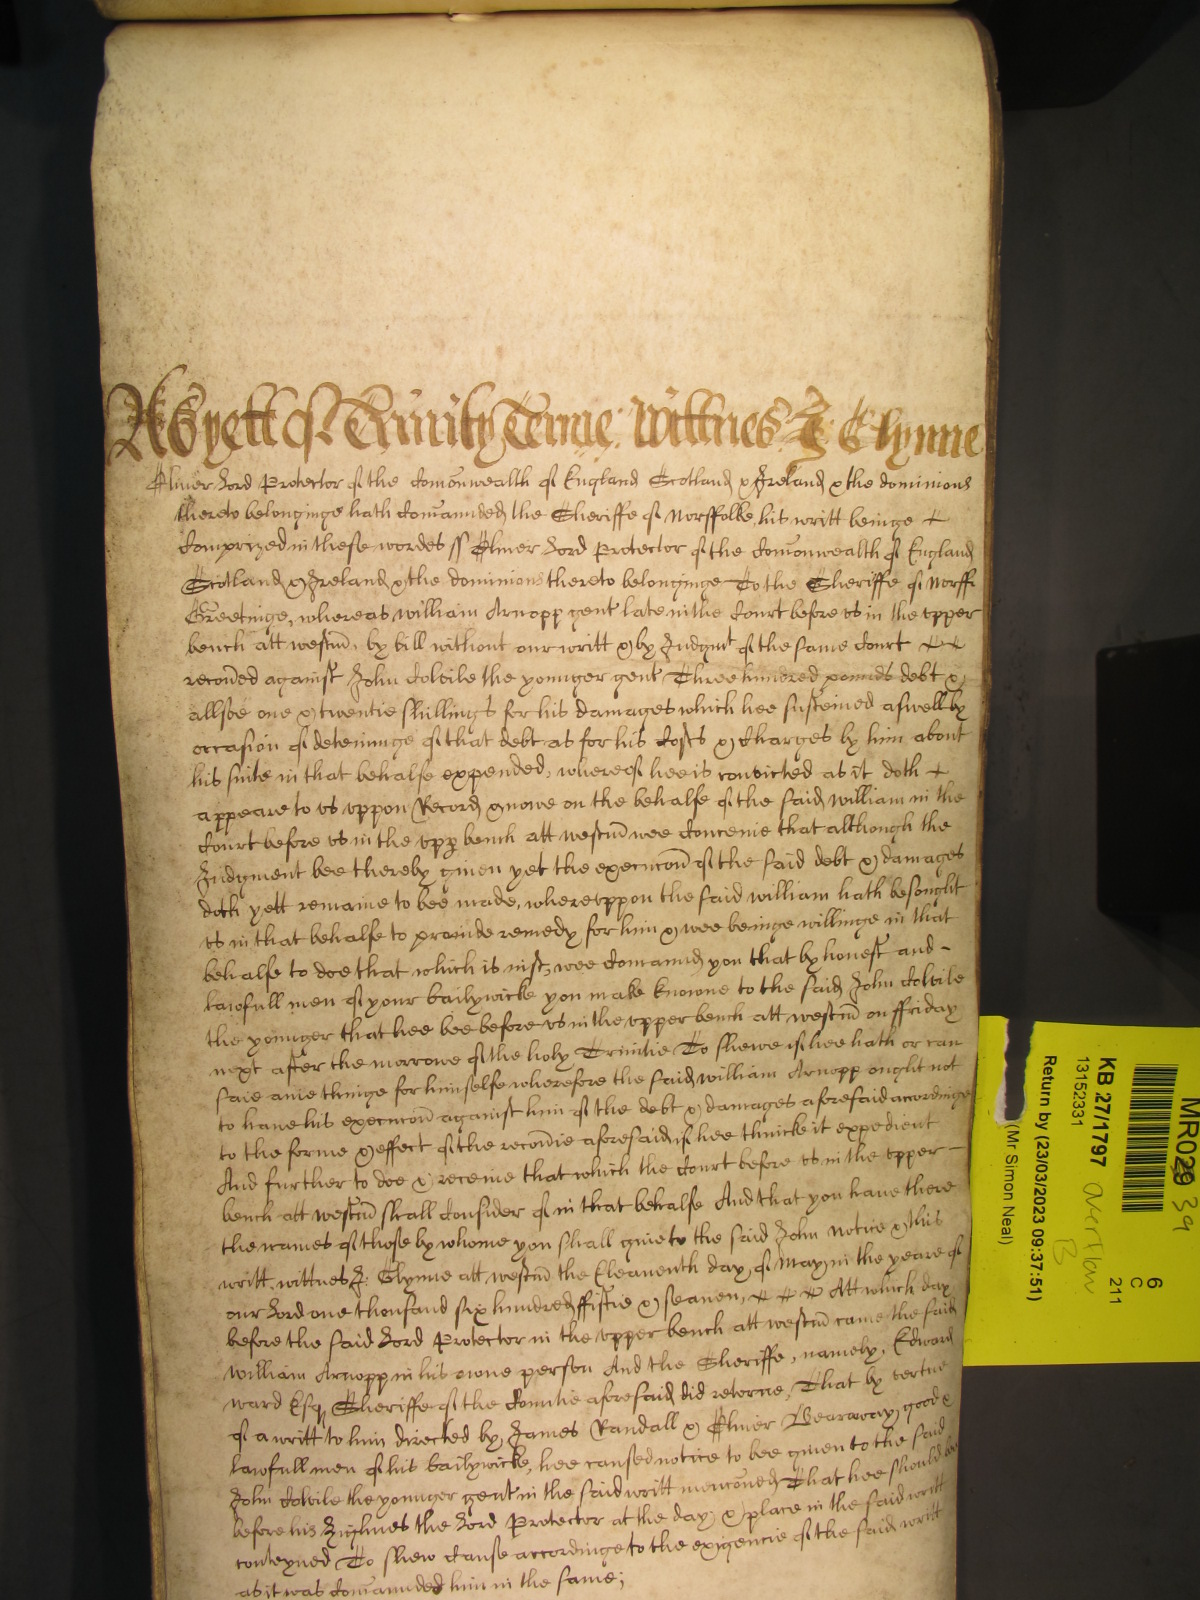 As yett of Trinity Terme Wittnes J Glynne
Oliver Lord Protector of the Comonwealth of England Scotland & Ireland & the dominions
thereto belonginge hath Comaunded the Sheriffe of Norffolke his writt beinge
Comprized in these wordes ss Oliver Lord Protector of the Comonwealth of England
Scotland & Ireland & the dominions thereto belonginge To the Sheriffe of Norff
Greetinge, whereas William Arnopp gent late in the Court before us in the upper
bench att westm by bill without our writt & by Judgmt of the same Court
recoved against John Colvile the younger gent Three hundred pounds debt &
allsoe one & twentie shillings for his damages which hee susteined aswell by
occasion of deteininge of that debt as for his Costs & Charges by him about
his suite in that behalfe expended, whereof hee is convicted as it doth
appeare to us uppon Record & nowe on the behalfe of the said William in the
Court before us in the upp bench att westm wee Conceive that although the
Judgment bee thereby given yet the execucon of the said debt & damages
doth yett remaine to bee made, whereuppon the said William hath besought
us in that behalfe to provide remedy for him & wee beinge willinge in that
behalfe to doe that which is iust, wee Comaund you that by honest and -
lawfull men of your bailywicke you make knowne to the said John Colvile
the younger that hee bee before us in the upper bench att westm on ffriday
next after the morrowe of the holy Trinitie To shewe if hee hath or can
saie anie thinge for himselfe wherefore the said William Arnopp ought not
to have his execucon against him of the debt & damages aforesaid accordinge
to the forme & effect of the recovie aforesaid if hee thincke it expedient
And further to doe & receive that which the Court before us in the upper
bench att westm shall Consider of in that behalfe And that you have there
the names of those by whome you shall give to the said John notice & this
writt. wittnes J: Glynne att westm the Eleaventh day of May in the yeare of
our Lord one thousand six hundred ffiftie & seaven, Att which day
before the said Lord Protector in the upper bench att westm came the said
William Arnopp in his owne person And the Sheriffe, namely, Edward
Ward Esq Sheriffe of the Countie aforesaid did retorne, That by vertue
of a writt to him directed by James Randall & Oliver Bearaway good &
lawfull men of his bailywicke, hee caused notice to bee given to the said
John Colvile the younger gent in the said writt menconed That hee should bee
before his Highnes the Lord Protector at the day & place in the said writt
conteyned To shew Cause accordinge to the exigencie of the said writt
as it was Comaunded him in the same;
MR029 39
KB 27/1797
13152331
overflow
B
6
C
211
Return by (23/03/2023 09:37:51)
(Mr Simon Neal)